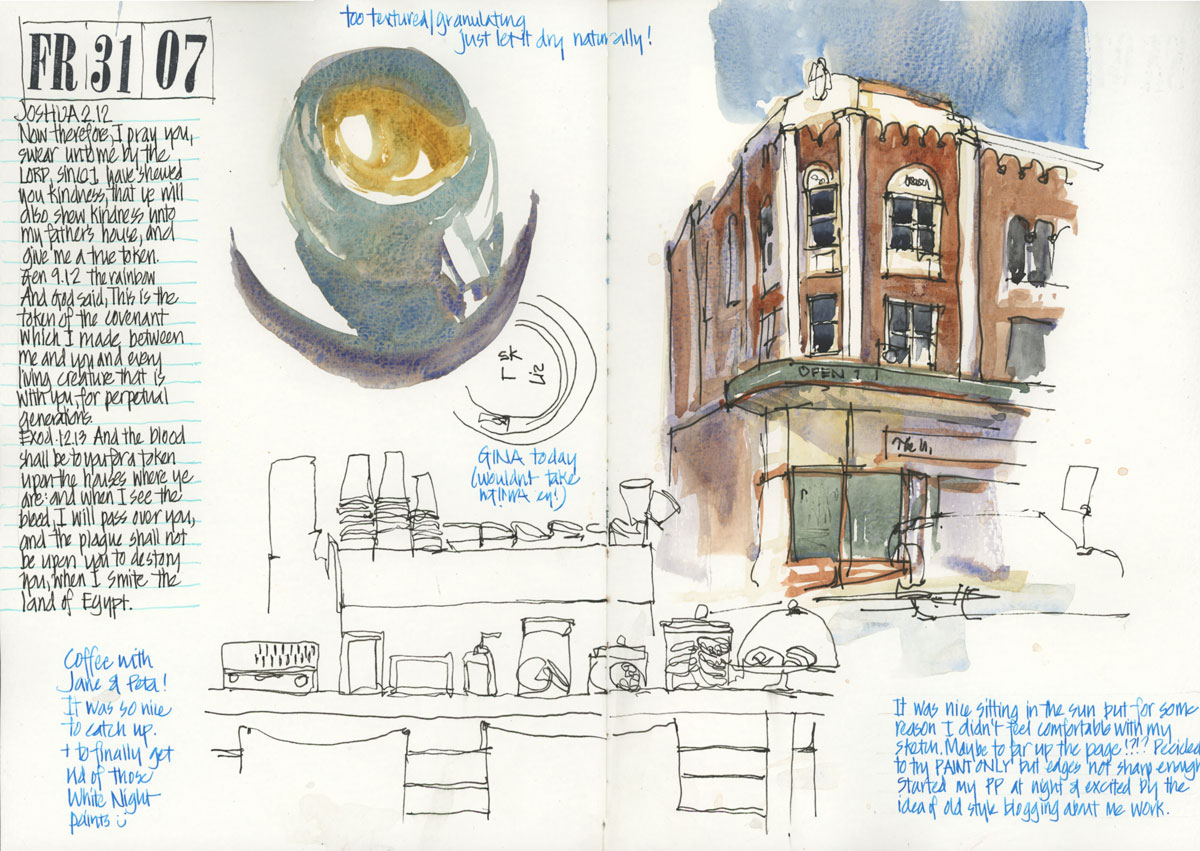 FR 31 07
JOSHUA 2.12
Now therefore, I pray you,
swear unto me by the
LORD, since I have shewed
you kindness, that ye will
also shew kindness unto
my father's house, and
give me a true token.
Gen 9.12 the rainbow
And God said, This is the
token of the covenant
which I made between
me and you and every
living creature that is
with you for perpetual
generations.
Exod.12.13 And the blood
shall be to you for a token
upon the houses where ye
are: and when I see the
blood, I will pass over you,
and the plague shall not
be upon you to destory
you, when I smite the
land of Egypt.
Coffee with
Jane & Peta!
It was so nice
to catch up.
+ to finally get
rid of those
White Night
paints
too textured/granulating
just let it dry naturally!
sk
Liz
GINA today
(wouldn't take
OPEN
The
It was nice sitting in the sun but for some
reason I didn't feel comfortable with my
sketch. Maybe to far up the page!?!? Decided
to try PAINT ONLY but edges not sharp enough
Started my PP at night & excited by the
idea of old style blogging about me work.